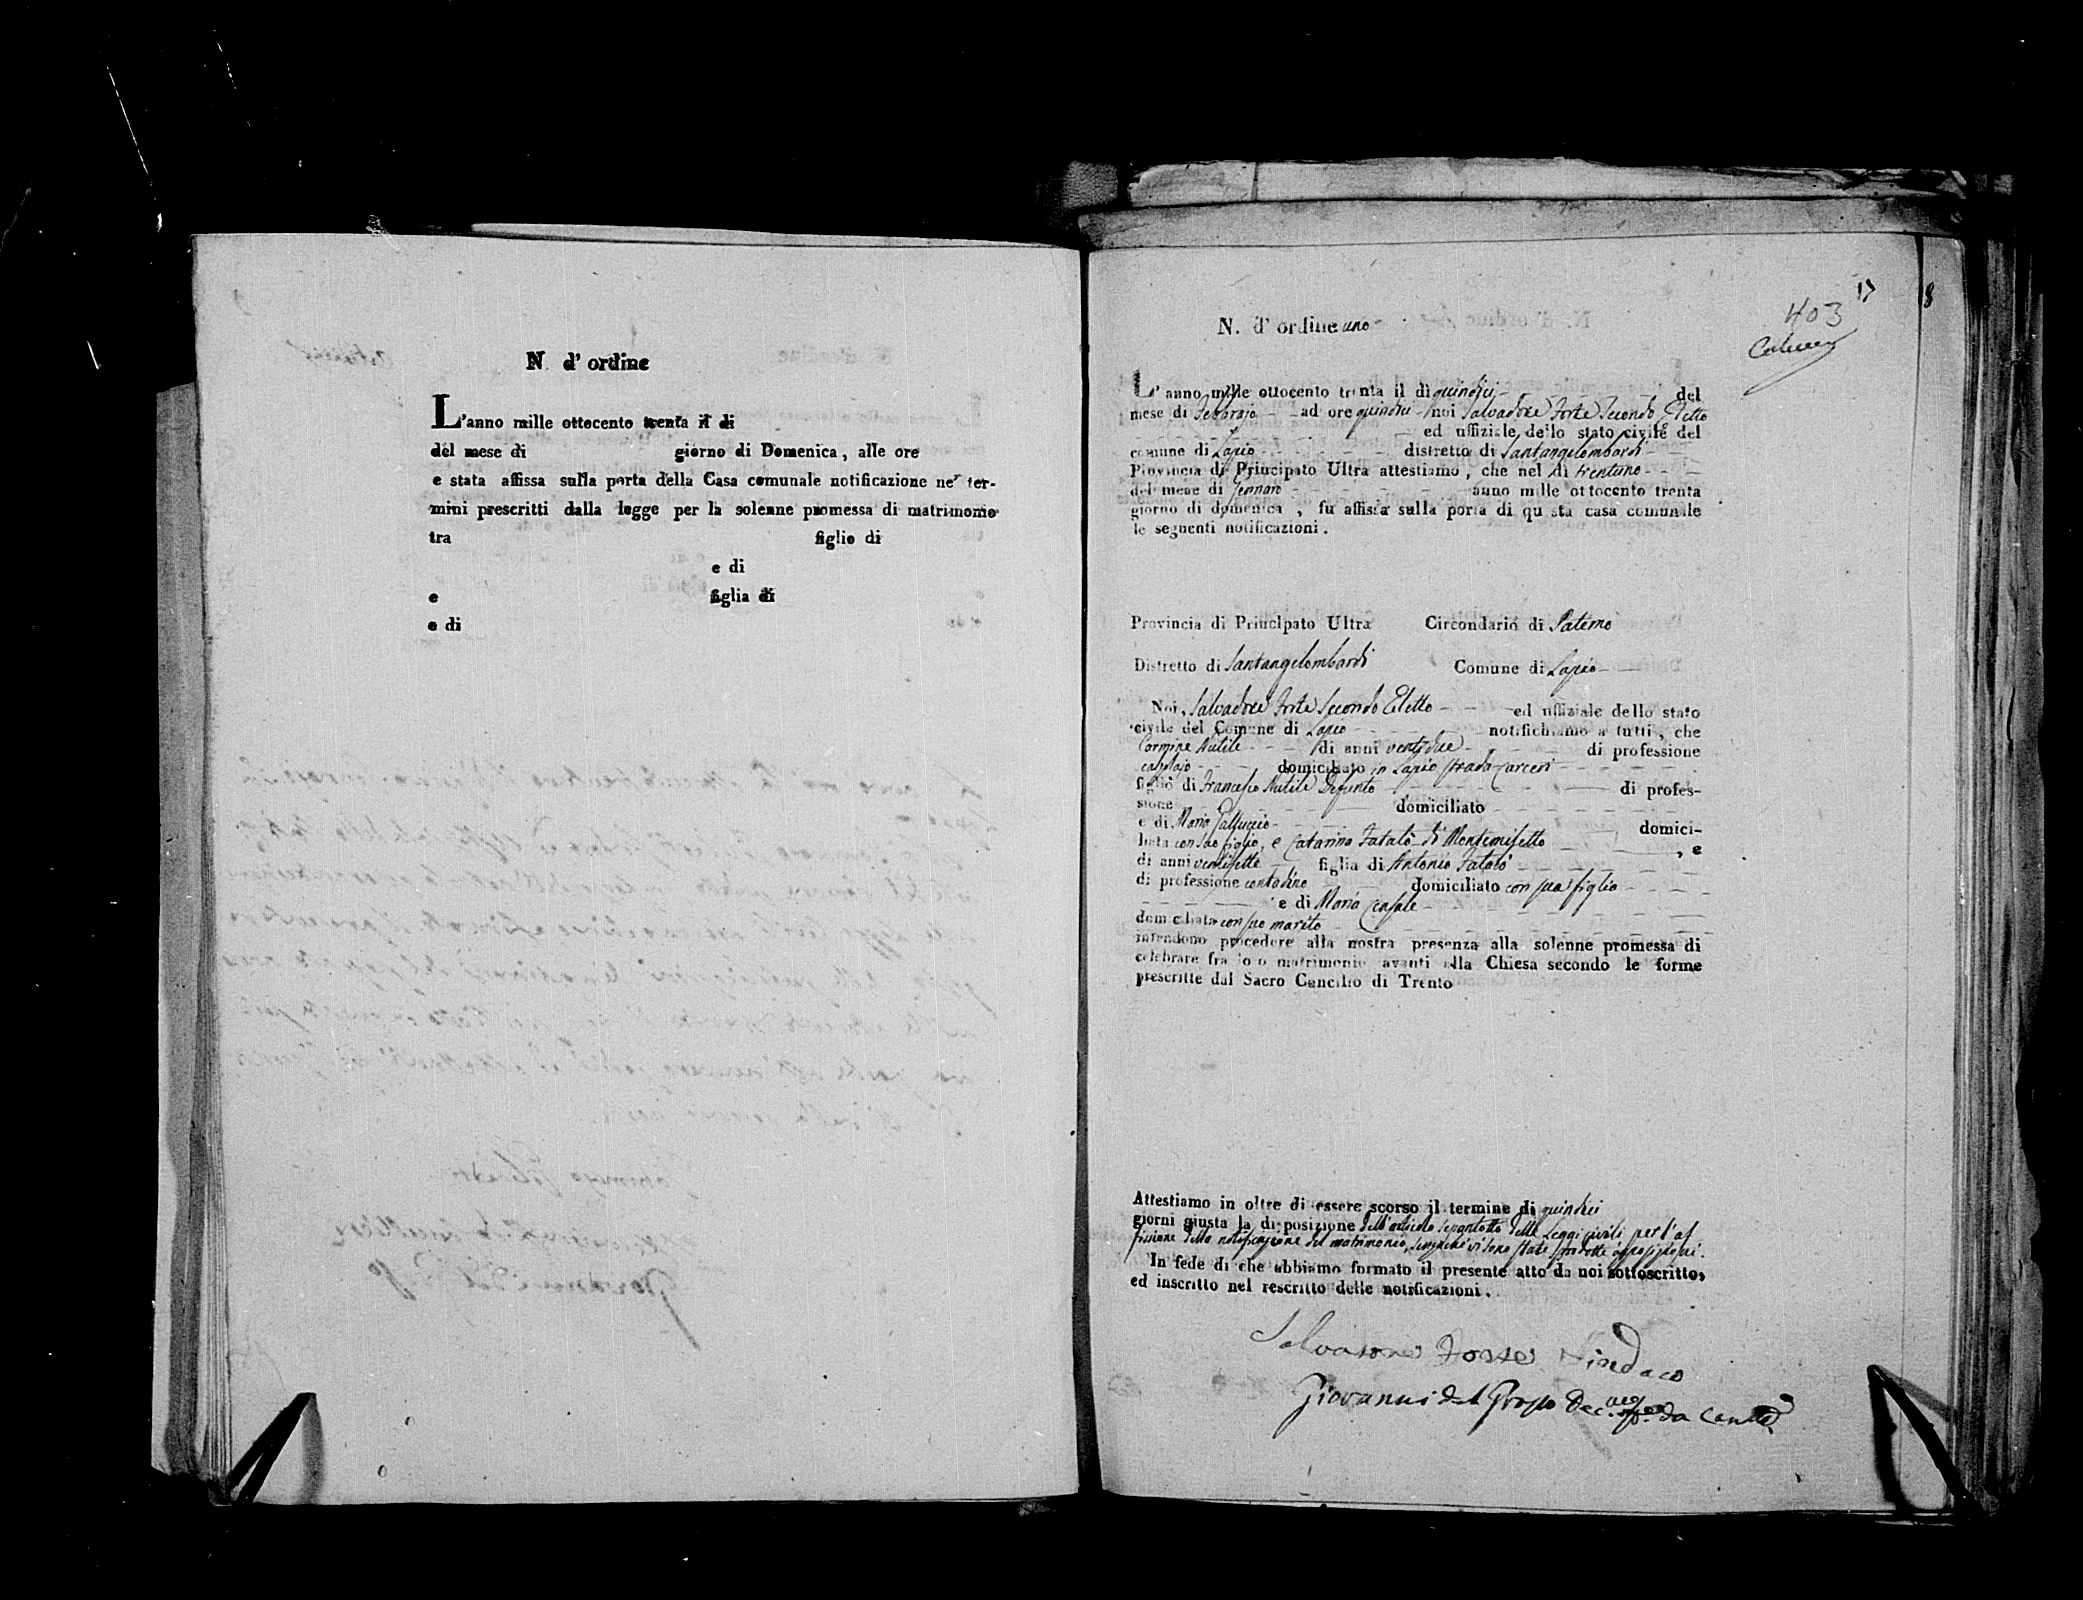 N. d' ordine
L'anno mille ottocento trenta il di
del mese di giorno di Domenica, alle ore
e stata affissa sulla porta della Casa comunale notificazione ne' ter-
mini prescritti dalla legge per la solenne promessa di matrimonio
tra figlio di
e di
e figlia di
e di
17
8
403
N. d' ordine uno
L' anno mille ottocento trenta il dì quindici del
mese di Febbrajo ad ore quindici noi Salvadore Forte Secondo Eletto
ed uffiziale dello stato civile del
comune di Lapio distretto di Santangelombardi
Provincia di Principato Ultra attestiamo, che nel dì trentuno
del mese di Gennaro anno mille ottocento trenta
giorno di domenica, fu affissa sulla porta di questa casa comunale
le seguenti notificazioni.
Provincia di Principato Ultra Circondario di Paterno
Distretto di Santangelombardi Comune di Lapio
Noi, Salvadore Forte Secondo Eletto ed uffiziale dello stato
civile del Comune di Lapio notifichiamo a tutti, che
Carmine Nutile di anni ventidue di professione
domiciliato in Lapio strada Carceri
figlio di Francesco Nutile Defunto di profes-
sione domiciliato
e di Maria Galluccio domici-
liata con suo figlio, e Catarina Fatalò di Montemiletto , e
di anni ventisette figlia di Antonio Fatalò
di professione contadino domiciliato con sua figlia
e di Maria Casale
domiciliata con suo marito
intendono procedere alla nostra presenza alla solenne promessa di
celebrare fra loro matrimonio avanti alla Chiesa secondo le forme
prescritte dal Sacro Concilio di Trento
Attestiamo in oltre di essere scorso il termine di quindici
giorni giusta la disposizione dell'articolo sessantotto delle Leggi civili per l'af
fissione della notificazione del matrimonio, senzache vi sono state prodotte opposizioni.
In fede di che abbiamo formato il presente atto da noi sottoscritto,
ed inscritto nel rescritto delle notificazioni.
Salvatore Forte Sindaco
Giovanni del Grosso